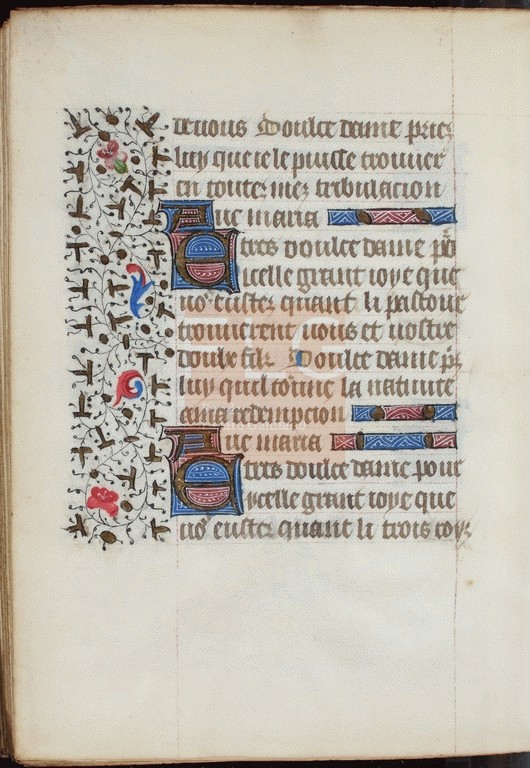 de vous Doulce dame priez
luy que ie le puisse trouuer
en toutez mez tribulacion
Aue maria
E tres doulce dame po
icelle grant ioye que
vo eustez quant li pastour
trouuerent vous et vostre
doulz filz Doulce dame
luy quil tourne la natiuite
a ma redempcion
Aue maria
E tres doulce dame pour
ycelle grant ioye que
vo eustez quant li trois roys